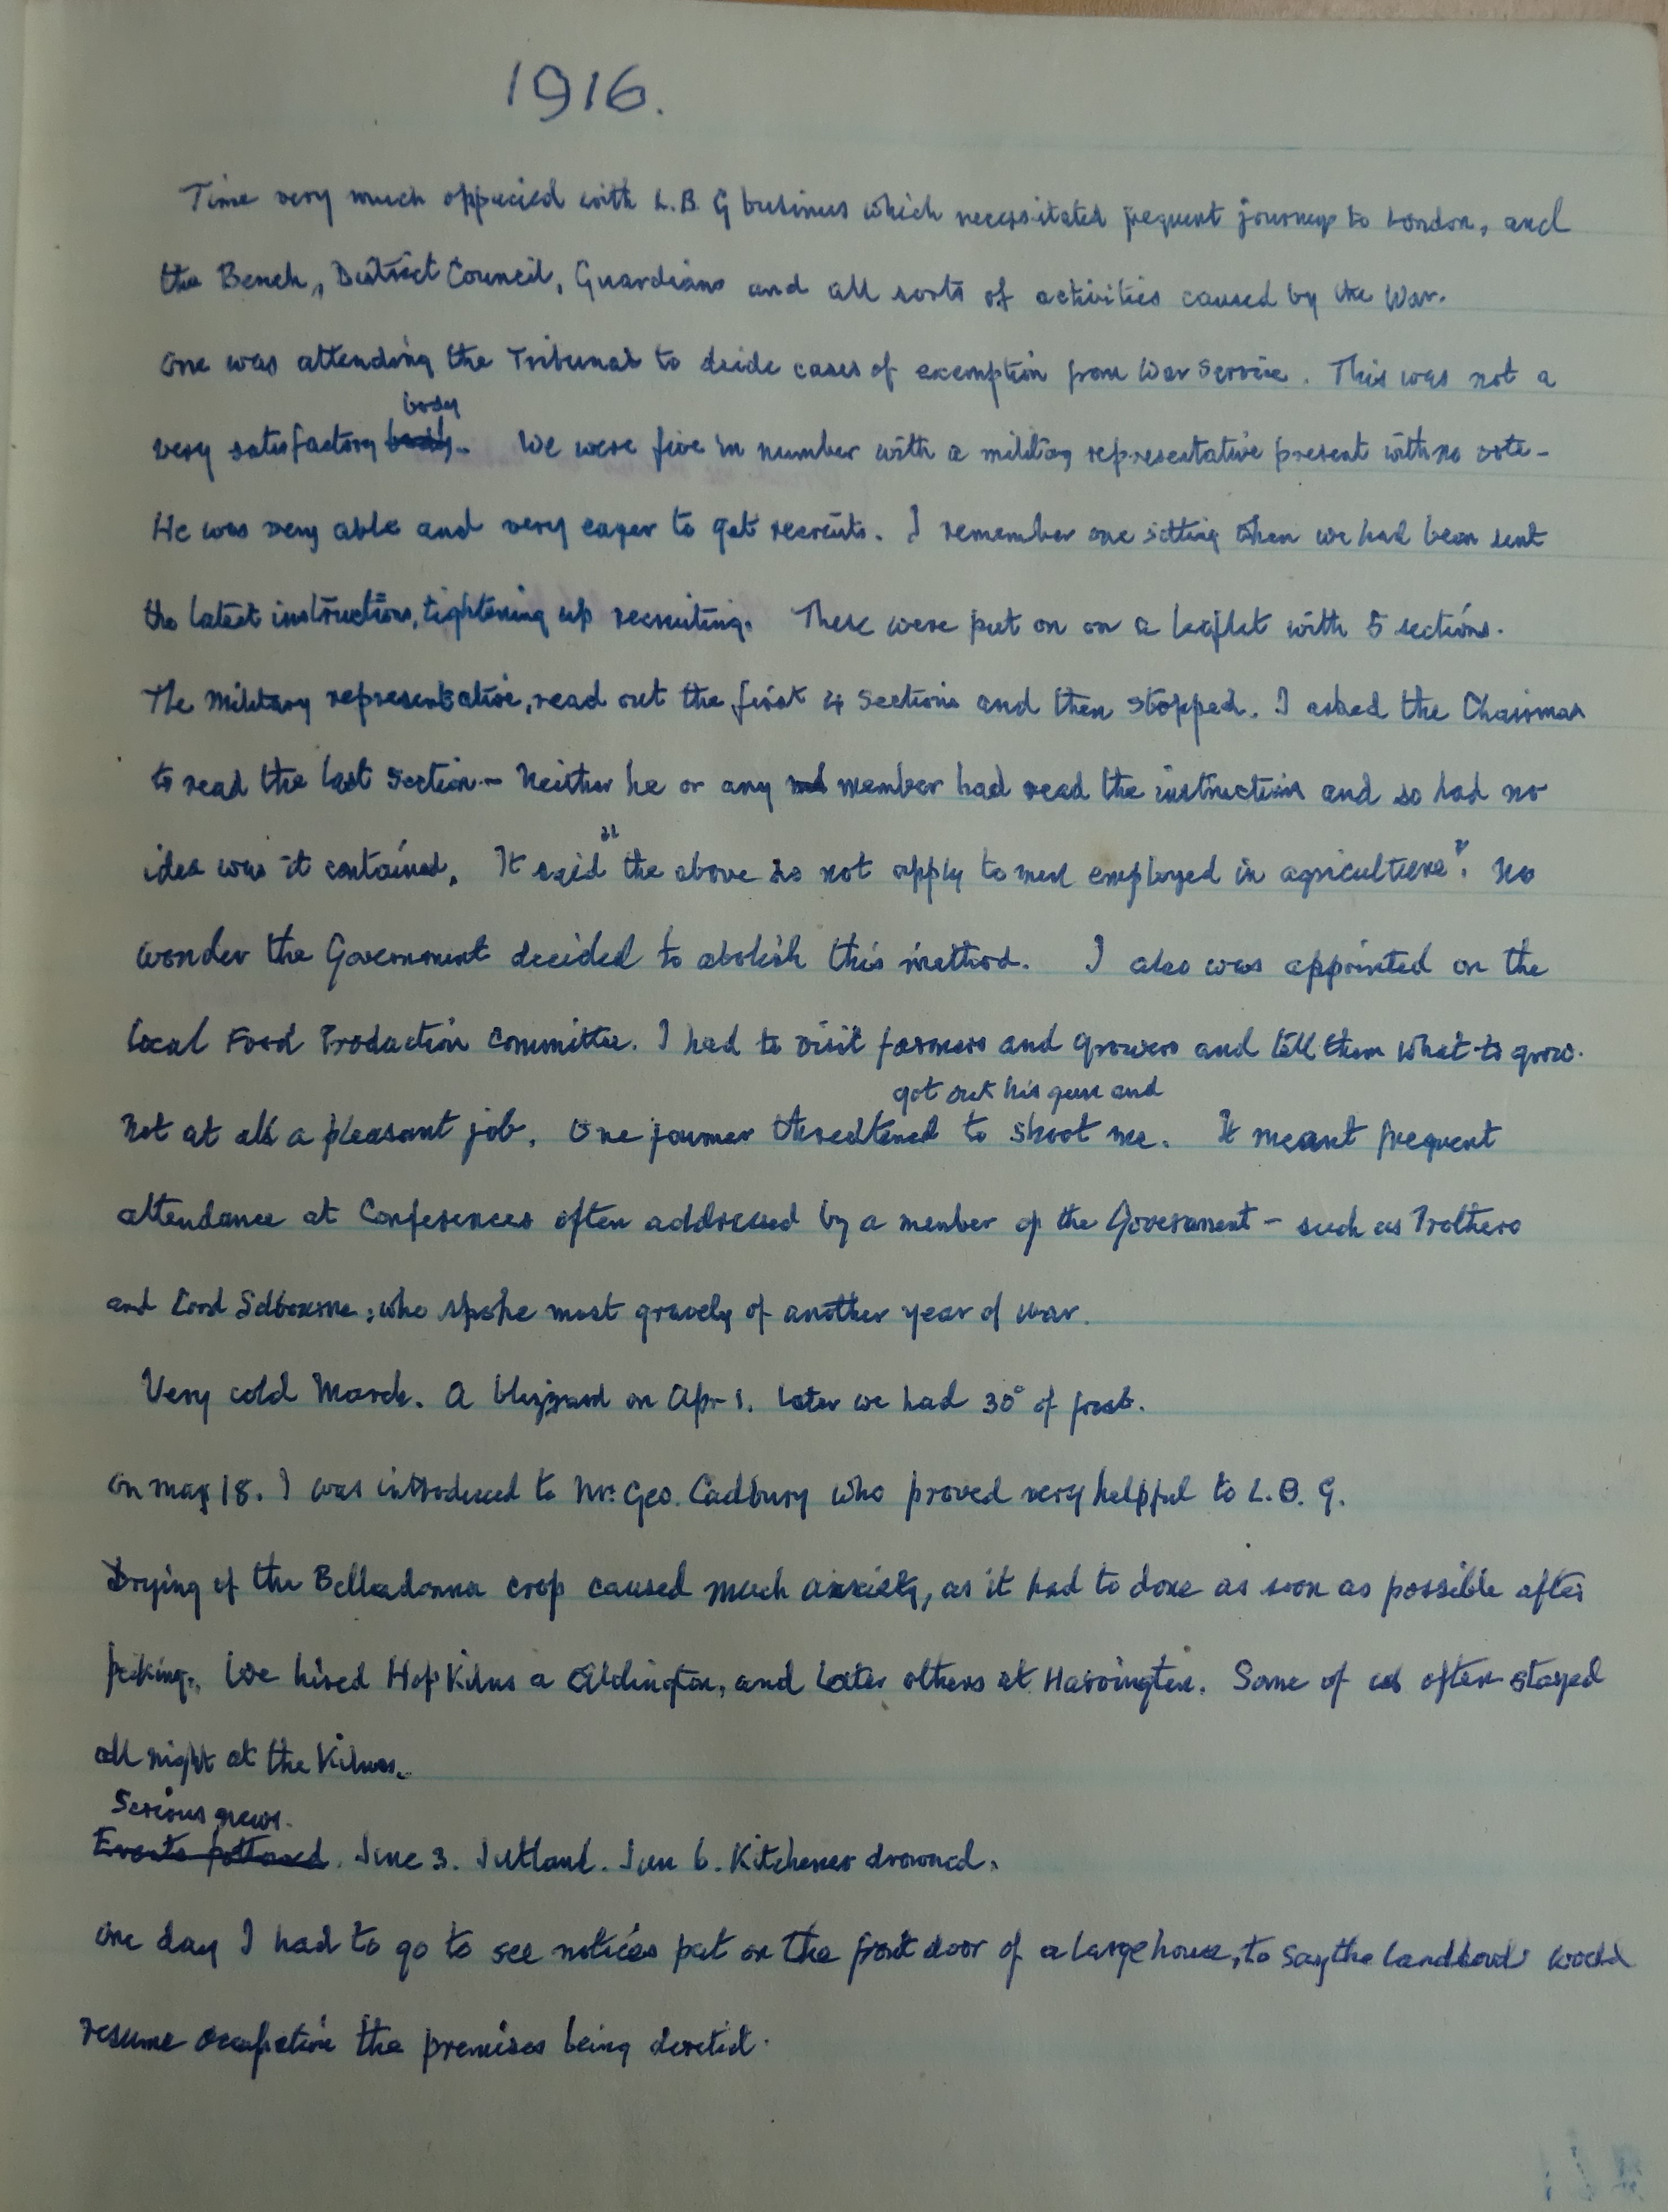 1916.
Time very much oppucied with L.B.G business which necessitated frequent journeys to London, and
the Bench, District Council, Guardians and all sorts of activities caused by the War.
One was attending the Tribunal to decide cases of exemption from War Service. This was not a
body
very satisfactory body. We were five in number with a military representative present with no vote -
He was very able and very eager to get recruits. I remember one sitting when we had been sent
the latest instructions, tightening up recruiting. These were put on on a leaflet with 5 sections.
The Military representative, read out the first 4 Sections and then stopped. I asked the Chairman
to read the last Section - Neither he or any member had read the instructions and so had no
idea was it contained. It said "the above do not apply to men employed in agriculture". No
wonder the Government decided to abolish this method. I also was appointed on the
Local Food Production Committee. I had to visit farmers and growers and tell them what to grow.
got out his gun and
Not at all a pleasant job. One farmer threatened to shoot me. It meant frequent
attendance at Conferences often addressed by a member of the Government - such as Prothero
and Lord Selbourne, who spoke most gravely of another year of war.
Very cold March. A blizzard on Apr 1. Later we had 30° of frost.
On May 18. I was introduced to Mr. Geo. Cadbury who proved very helpful to L.B.G.
Drying of the Belladonna crop caused much anxiety, as it had to done as soon as possible after
picking. We hired Hop Kilns a Aldington, and later others at Harvington. Some of us often stayed
all night at the Kilns.
Serious news.
Events followed. June 3. Jutland. Jun 6. Kitchener drowned.
One day I had to go to see notices put on the front door of a large house, to say the landlord would
resume occupation the premises being